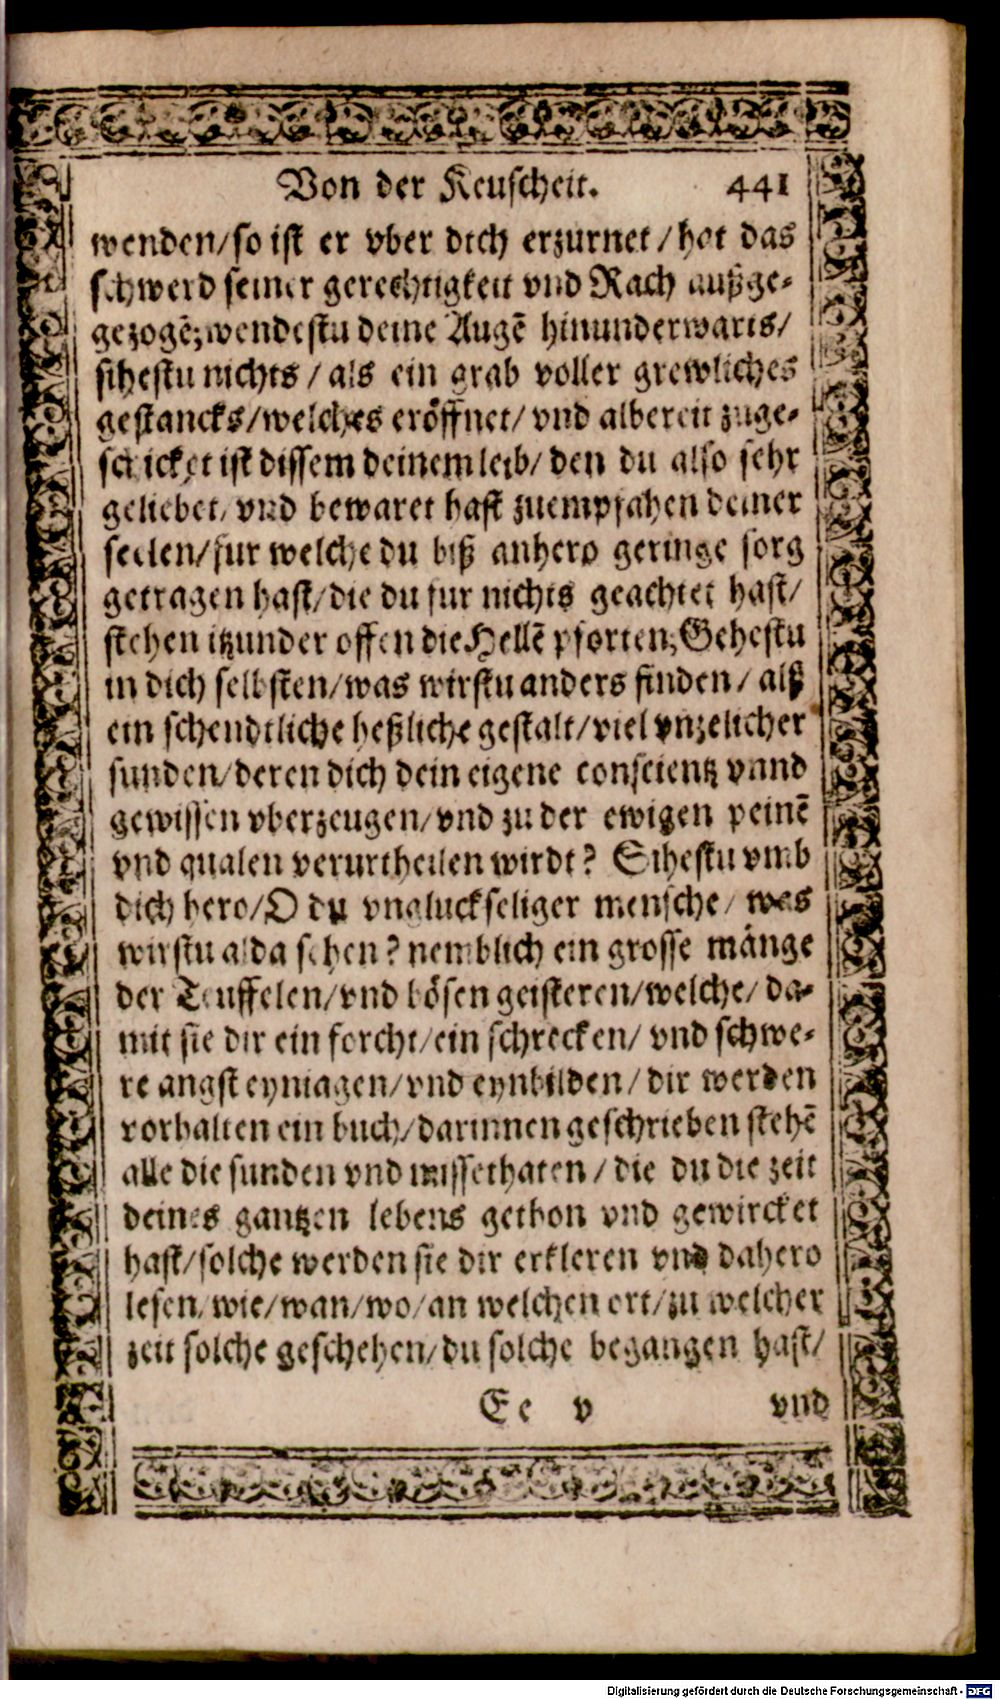 Von der Keuscheit. 441
wenden/so ist er vber dich erzurnet/hat das
schwerd seiner gerechtigkeit vnd Rach außge-
gezogē;wendestu deine Augē hinunderwarts/
sihestu nichts/als ein grab voller grewliches
gestancks/welches eröffnet/vnd albereit zuge-
schicket ist dissem deinem leib/den du also sehr
geliebet/vnd bewaret hast zuempfahen deiner
seelen/fur welche du biß anhero geringe sorg
getragen hast/die du fur nichts geachtet hast/
stehen itzunder offen die Hellē pforten;Gehestu
in dich selbsten/was wirstu anders finden/alß
ein schendtliche heßliche gestalt/viel vnzelicher
sunden/deren dich dein eigene conscientz vnnd
gewissen vberzeugen/vnd zu der ewigen peinē
vnd qualen verurtheilen wirdt? Sihestu vmb
dich hero/O du vngluckseliger mensche/was
wirstu alda sehen? nemblich ein grosse mänge
der Teuffelen/vnd bösen geisteren/welche/da-
mit sie dir ein forcht/ein schrecken/vnd schwe-
re angst eyniagen/vnd eynbilden/dir werden
vorhalten ein buch/darinnen geschrieben stehē
alle die sunden vnd missethaten/die du die zeit
deines gantzen lebens gethon vnd gewircket
hast/solche werden sie dir erkleren vnd dahero
lesen/wie/wan/wo/an welchen ort/zu welcher
zeit solche geschehen/du solche begangen hast/
Ee v vnd
Digitalisierung gefördert durch die Deutsche Forschungsgemeinschaft - DFG